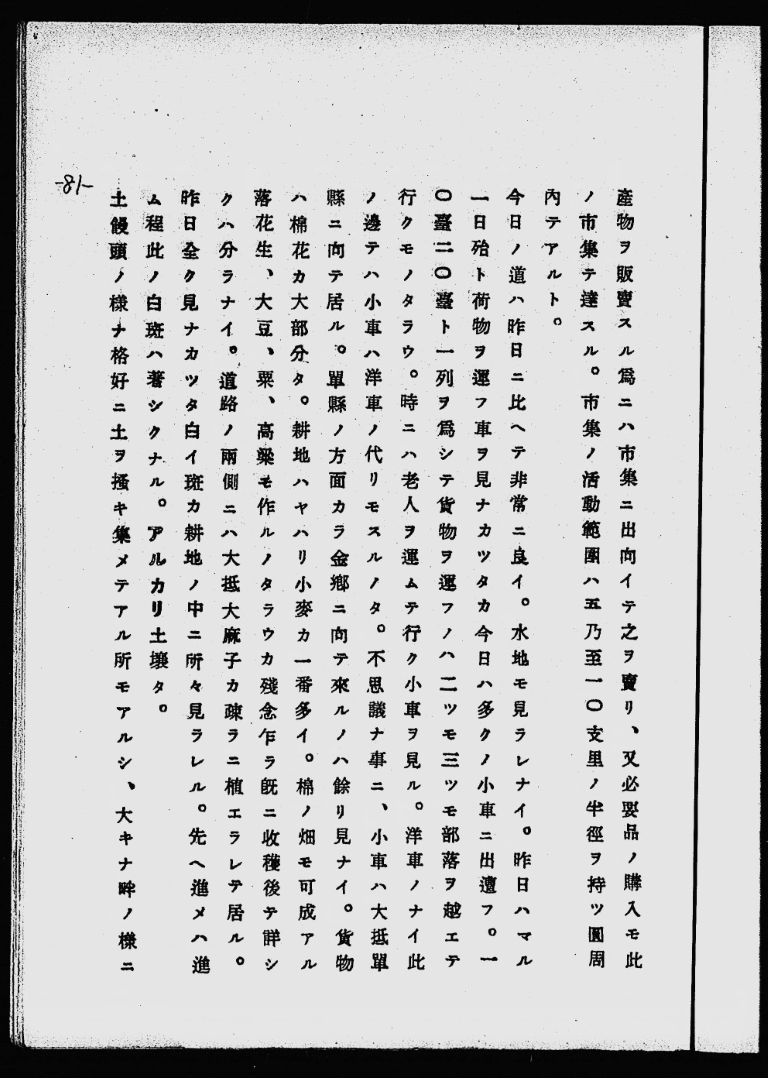 産物ヲ販賣スル爲ニハ市集ニ出向イテ之ヲ賣リ、又必要品ノ購入モ此
ノ市集テ達スル。市集ノ活動範圍ハ五乃至一〇支里ノ半徑ヲ持ツ圓周
內テアルト。
今日ノ道ハ昨日ニ比ヘテ非常ニ良イ。水地モ見ラレナイ。昨日ハマル
一日殆ト荷物ヲ運フ車ヲ見ナカツタカ今日ハ多クノ小車ニ出遭フ。一
〇臺二〇臺ト一列ヲ爲シテ貨物ヲ運フノハ二ツモ三ツモ部落ヲ越エテ
行クモノタラウ。時ニハ老人ヲ運ムテ行ク小車ヲ見ル。洋車ノナイ此
ノ邊テハ小車ハ洋車ノ代リモスルノタ。不思議ナ事ニ、小車ハ大抵單
縣ニ向テ居ル。單縣ノ方面カラ金鄕ニ向テ來ルノハ餘リ見ナイ。貨物
ハ棉花カ大部分タ。耕地ハヤハリ小麥カ一番多イ。棉ノ畑モ可成アル
落花生、大豆、粟、高粱モ作ルノタラウカ殘念乍ラ旣ニ收穫後テ詳シ
クハ分ラナイ。道路ノ兩側ニハ大抵大麻子カ疎ラニ植エラレテ居ル。
昨日全ク見ナカツタ白イ斑カ耕地ノ中ニ所々見ラレル。先ヘ進メハ進
ム程此ノ白斑ハ著シクナル。アルカリ土壤タ。
土饅頭ノ樣ナ格好ニ土ヲ搔キ集メテアル所モアルシ、大キナ畔ノ樣ニ
-81-